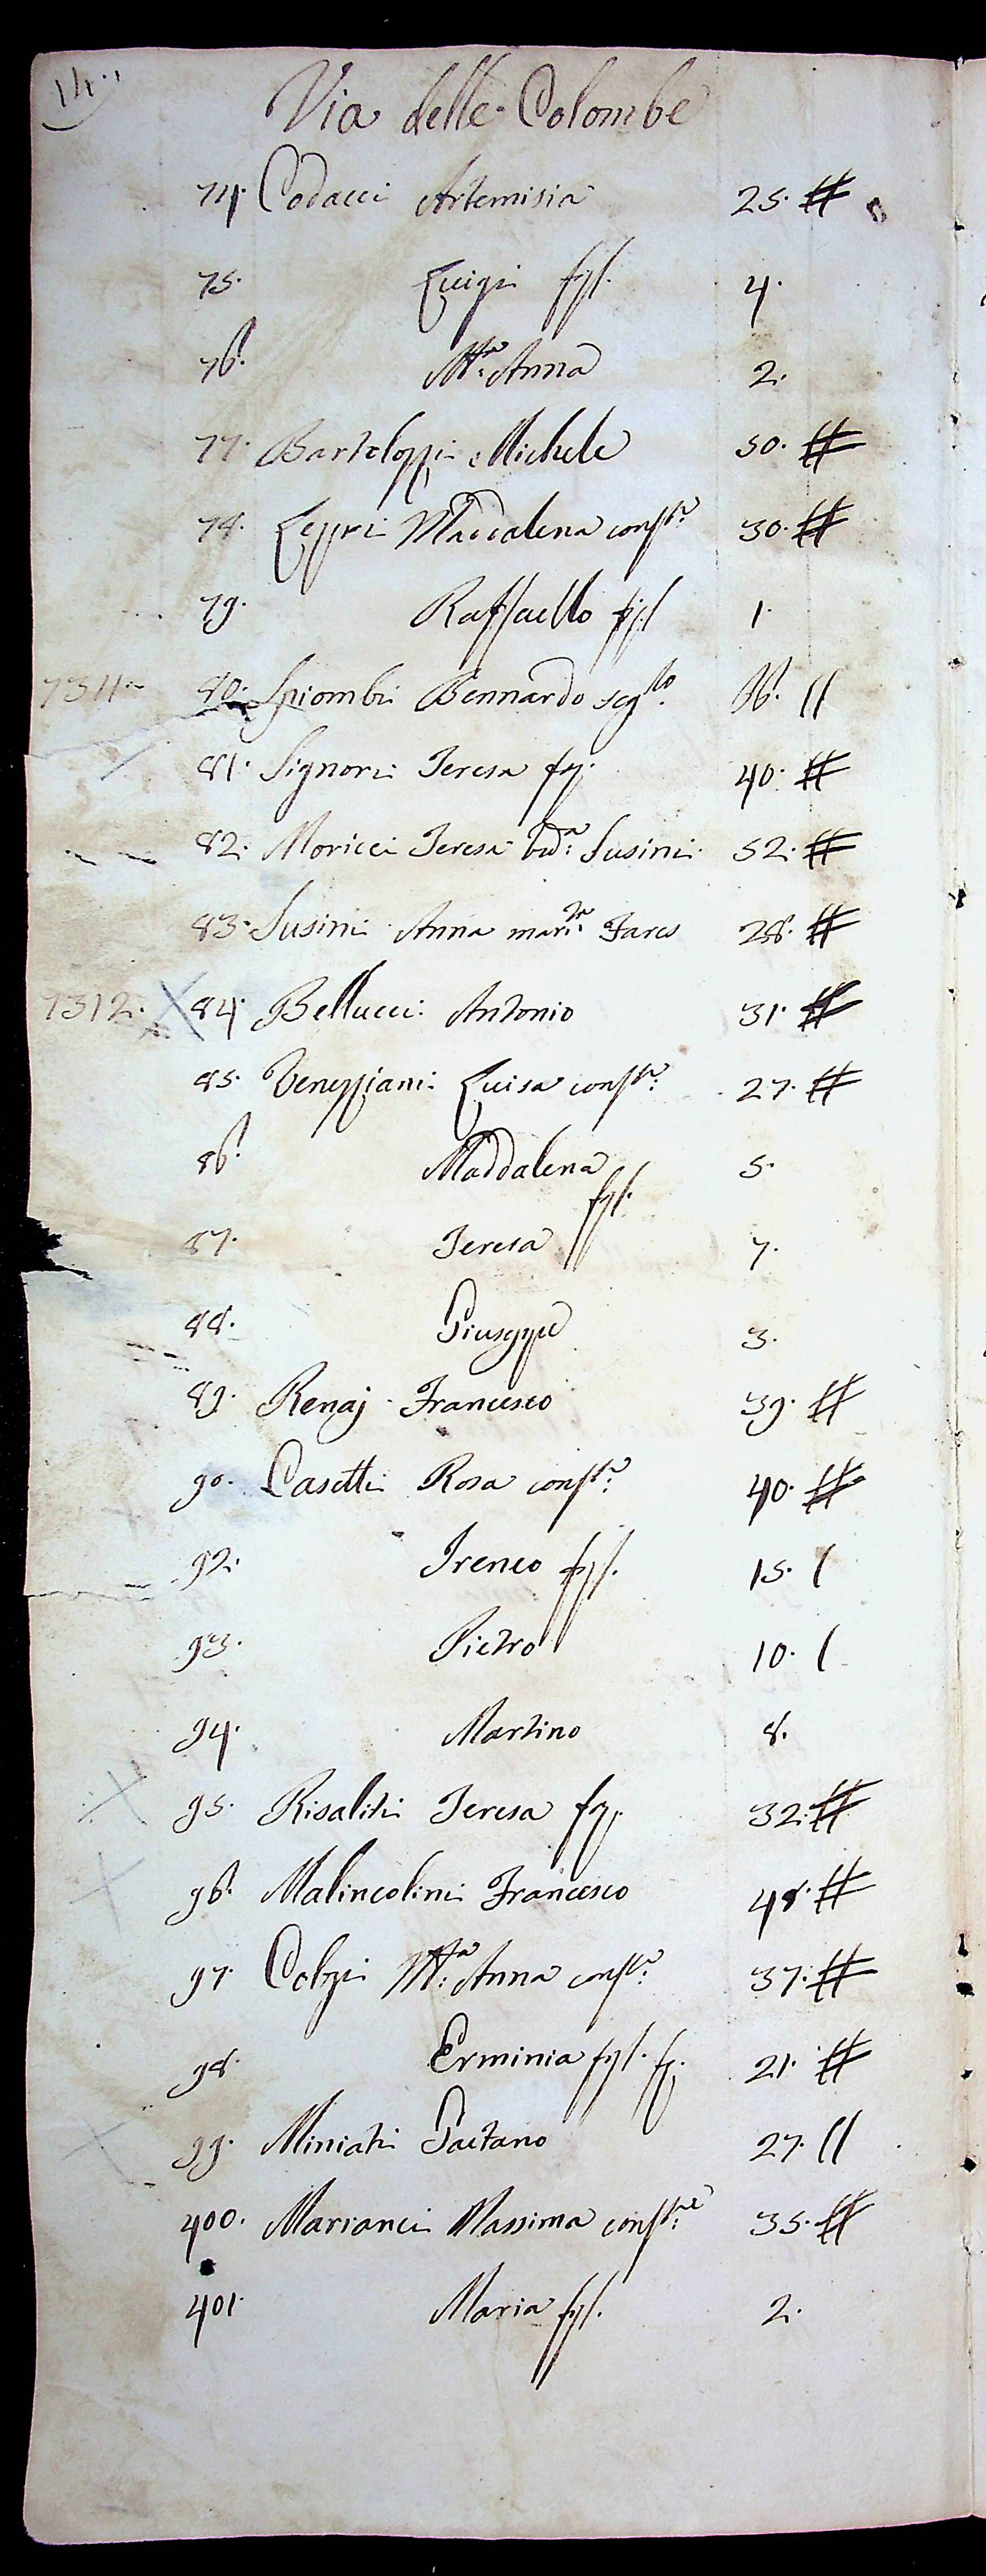 14
Via delle Colombe
74. Codacci Artemisia 25. #
75. Luigi figl. 4.
76. M.ª Anna 2.
77. Bartolozzi Michele 50. #
78. Leppri Maddalena cons.te 30. #
79. Raffaello figl 1.
7311. 80. Spiombi Bennardo seg.to 36. //
81. Signori Teresa fz. 40. #
82. Moricci Teresa vd.ª Susini 52. #
83. Susini Anna mar.ta Fares 28. #
7312. X 84. Bellucci Antonio 31. #
85. Venezziani Luisa cons.te 27. #
86. Maddalena 5.
figl.
87. Teresa 7.
88. Giuseppe 3.
89. Renaj Francesco 39. #
90. Casetti Rosa cons.te 40. #
92. Ireneo figl. 15. /
93. Pietro 10. /
94. Martino 8.
X 95. Risaliti Teresa fz. 32. #
X 96. Malincolini Francesco 48. #
97. Colzi M.ª Anna cons.te 37. #
98. Erminia figl. fz. 21. #
X 99. Miniati Gaetano 27. //
400. Marianci Massima cons.te 35. #
401. Maria figl. 2.